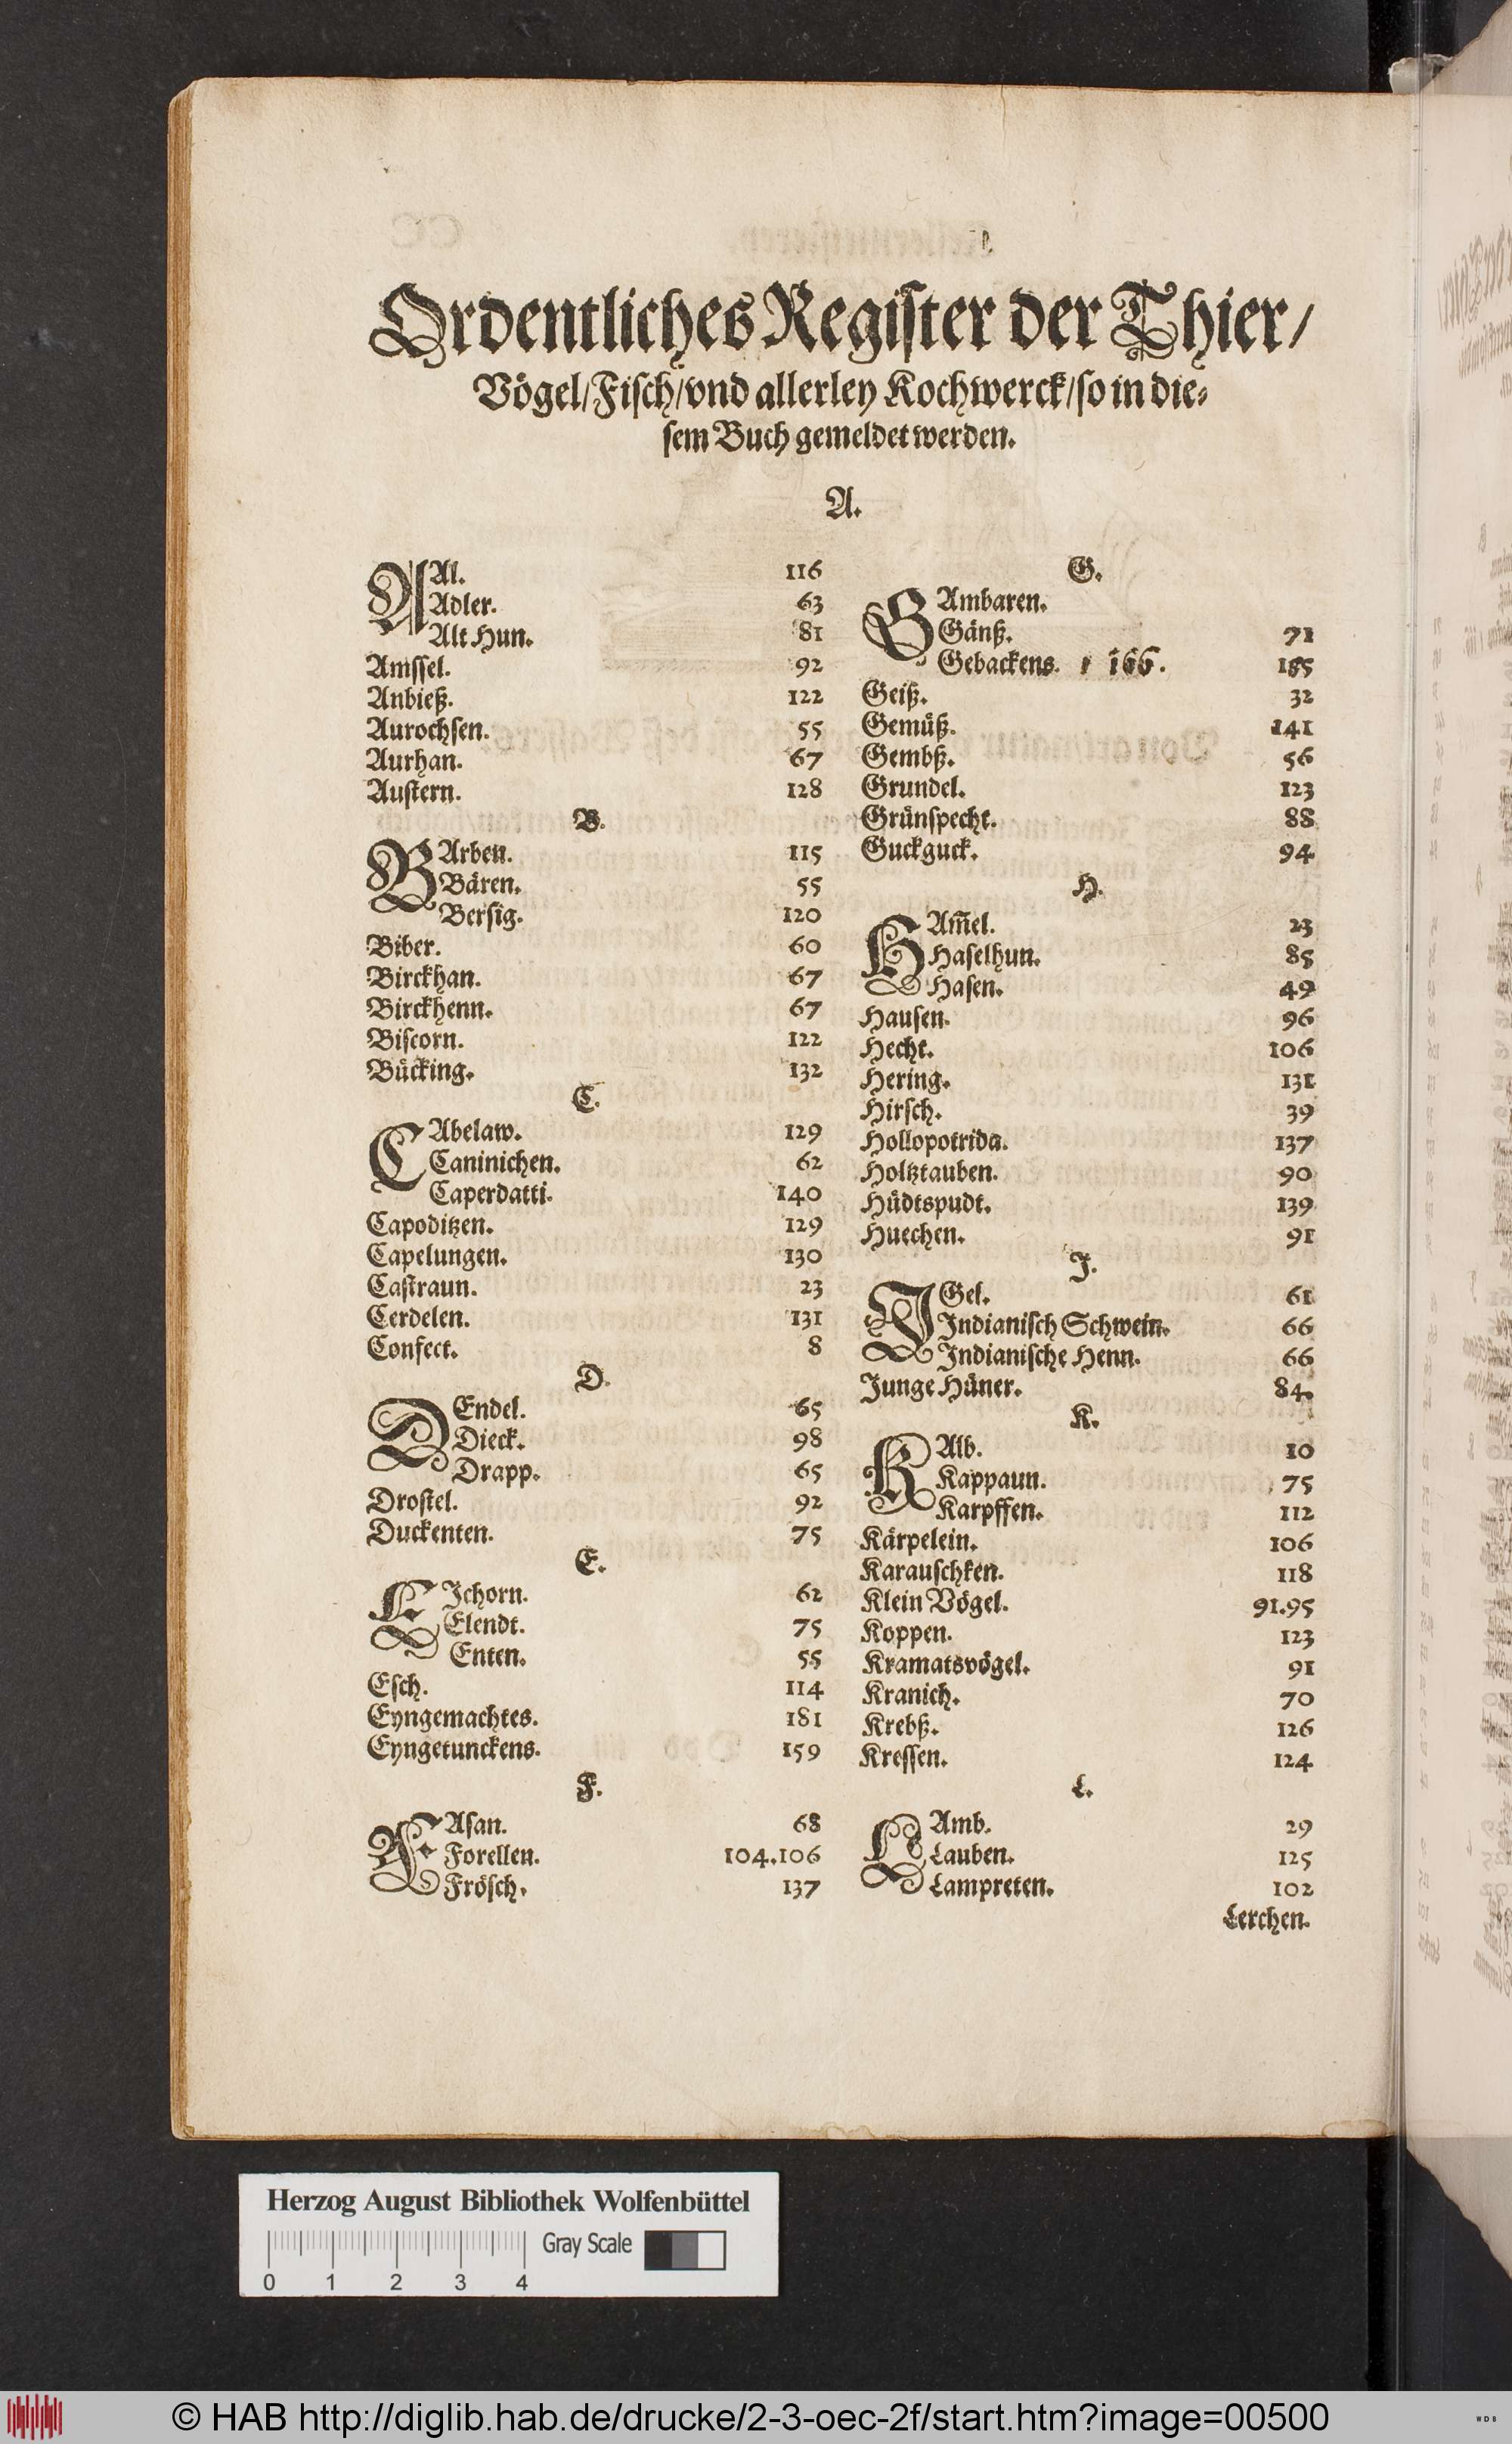 Ordentliches Register der Thier/
Vögel/Fisch/vnd allerley Kochwerck/so in die⸗
sem Buch gemeldet werden.
A.
AAl. 116
Adler. 63
Alt Hun. 81
Amssel. 92
Anbieß. 122
Aurochsen. 55
Aurhan. 67
Austern. 128
B.
BArben. 115
Bären. 55
Bersig. 120
Biber. 60
Birckhan. 67
Birckhenn. 67
Biscorn. 122
Bücking. 132
C.
CAbelaw. 129
Caninichen. 62
Caperdatti. 140
Capoditzen. 129
Capelungen. 130
Castraun. 23
Cerdelen. 131
Confect. 8
D.
DEndel. 65
Dieck. 98
Drapp. 65
Drostel. 92
Duckenten. 75
E.
EJchorn. 62
Elendt. 75
Enten. 55
Esch. 114
Eyngemachtes. 181
Eyngetunckens. 159
F.
FAsan. 68
Forellen. 104.106
Frösch. 137
G.
GAmbaren.
Gänß. 71
Gebackens. 166. 165
Geiß. 32
Gemüß. 141
Gembß. 56
Grundel. 123
Grünspecht. 88
Guckguck. 94
H.
HAm̃el. 23
Haselhun. 85
Hasen. 49
Hausen. 96
Hecht. 106
Hering. 131
Hirsch. 39
Hollopotrida. 137
Holtztauben. 90
Hüdtspudt. 139
Huechen. 91
J.
JGel. 61
Jndianisch Schwein. 66
Jndianische Henn. 66
Junge Hüner. 84.
K.
KAlb. 10
Kappaun. 75
Karpffen. 112
Kärpelein. 106
Karauschken. 118
Klein Vögel. 91.95
Koppen. 123
Kramatsvögel. 91
Kranich. 70
Krebß. 126
Kressen. 124
L.
LAmb. 29
Lauben. 125
Lampreten. 102
Lerchen.
Herzog August Bibliothek Wolfenbüttel
Gray Scale
0 1 2 3 4
© HAB http://diglib.hab.de/drucke/2-3-oec-2f/start.htm?image=00500
WDB